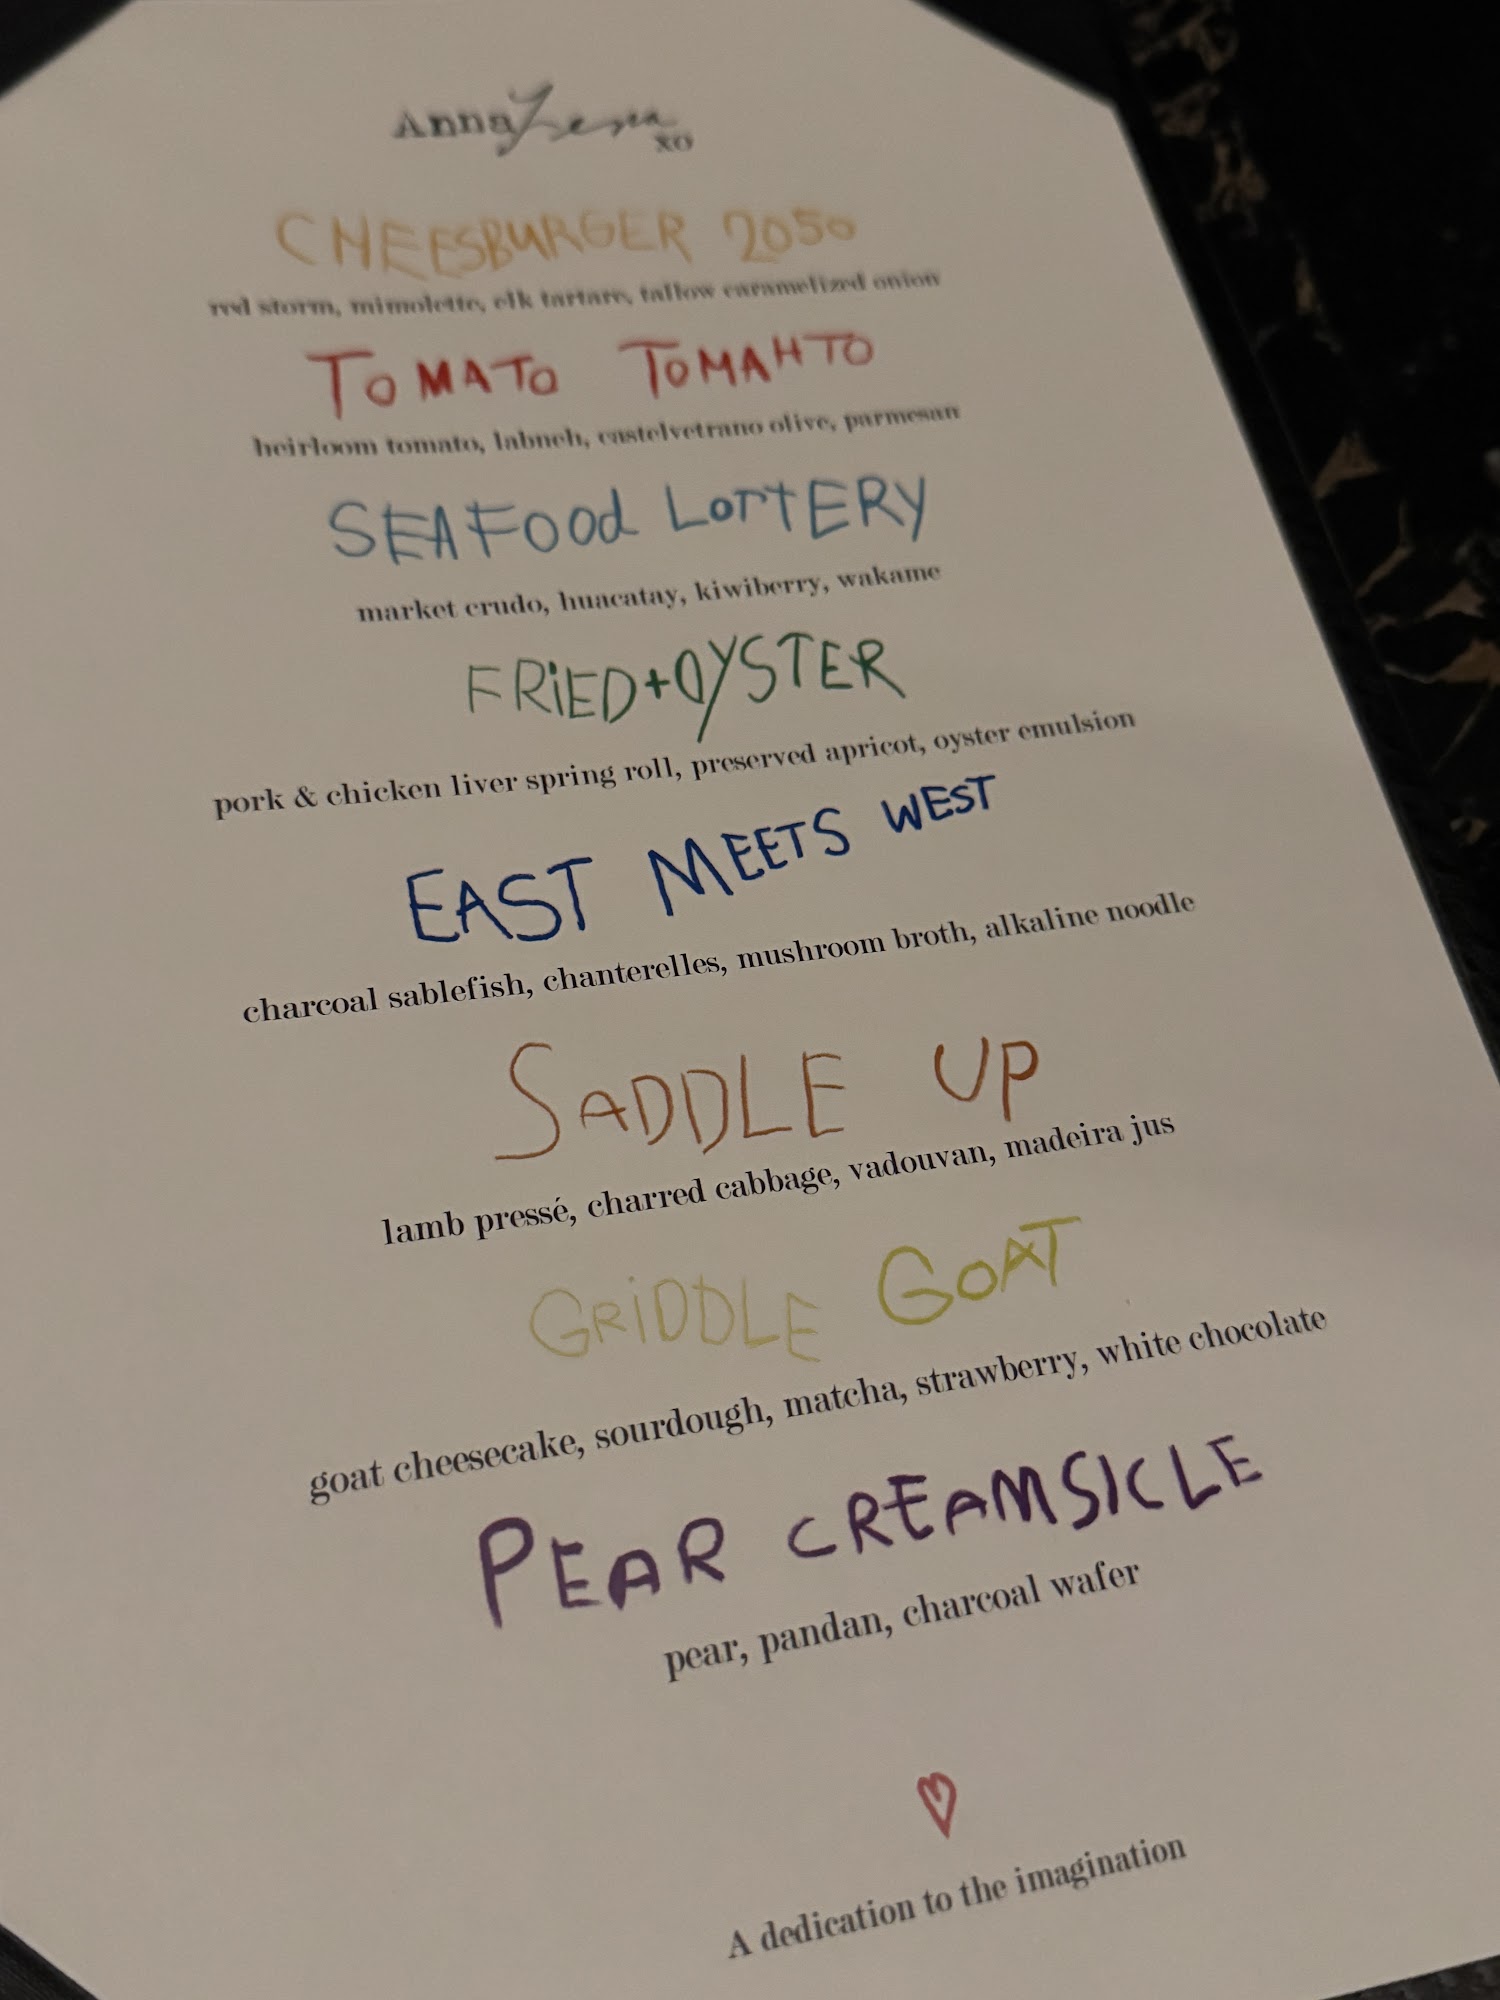 Anna Lena
xo
CHEESBURGER 2050
red storm, mimolette, elk tartare, tallow caramelized onion
TOMATO TOMAHTO
heirloom tomato, labneh, castelvetrano olive, parmesan
SEAFOOd LOTTERY
market crudo, huacatay, kiwiberry, wakame
FRiED+OYSTER
pork & chicken liver spring roll, preserved apricot, oyster emulsion
EAST MEETS WEST
charcoal sablefish, chanterelles, mushroom broth, alkaline noodle
SADDLE UP
lamb pressé, charred cabbage, vadouvan, madeira jus
GRiDDLE GOAT
goat cheesecake, sourdough, matcha, strawberry, white chocolate
PEAR CREAMSICLE
pear, pandan, charcoal wafer
A dedication to the imagination